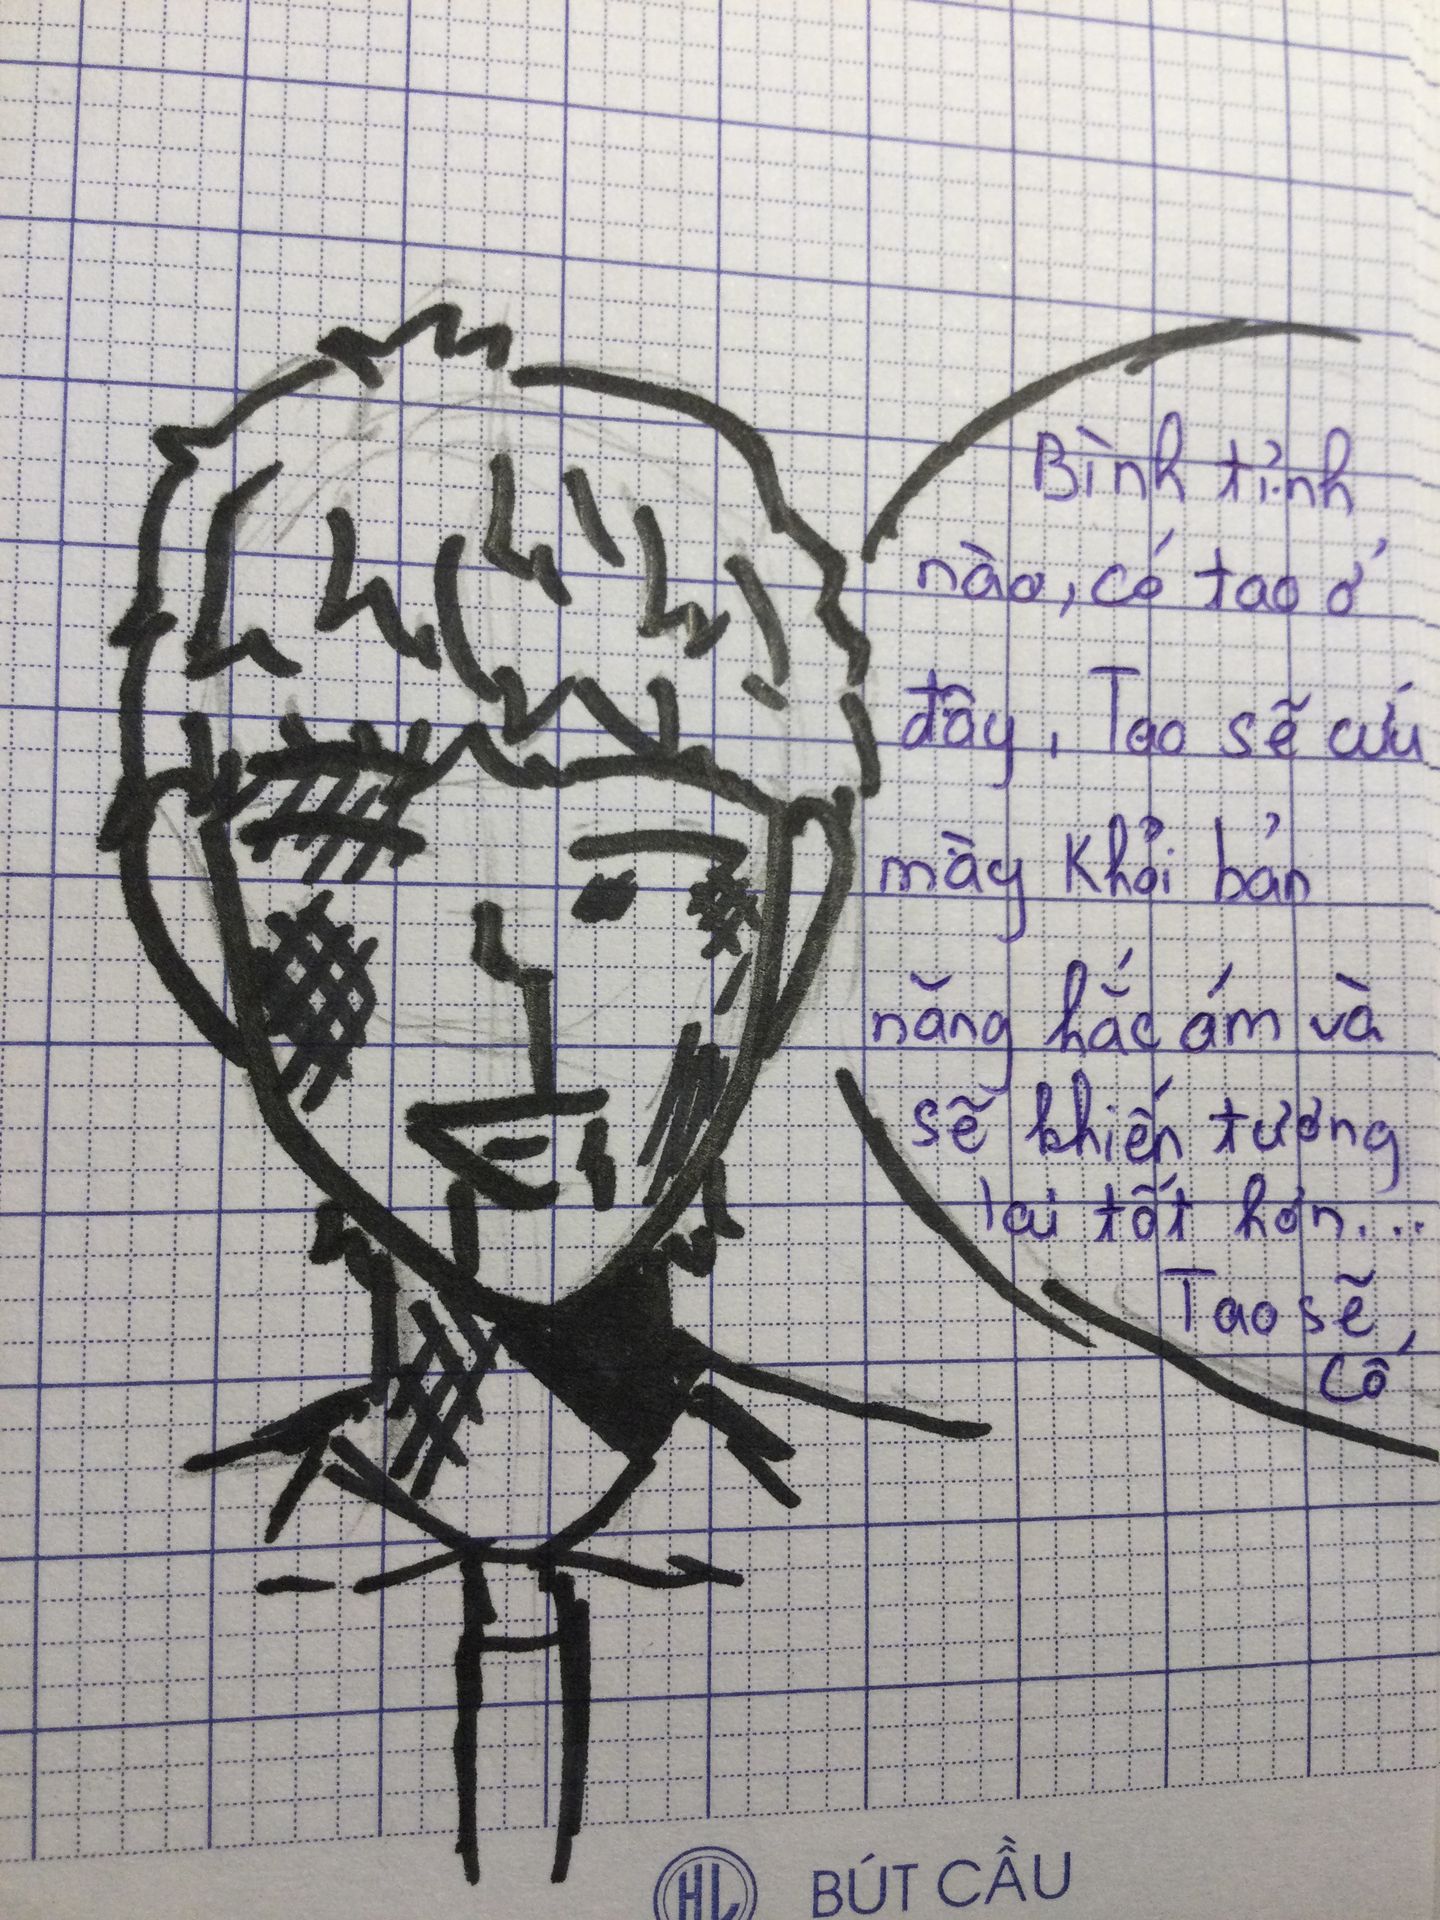 Bình tỉnh
nào, có tao ở
đây, Tao sẽ cứu
mày khỏi bản
năng hắc ám và
sẽ khiến tương
lai tốt hơn...
Tao sẽ
cố
HL BÚT CẦU